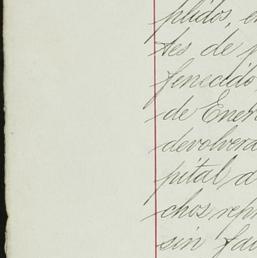 plidos, en
tes de p
fenecido
de Ener
devolvera
pital d
chos repr
sin fal